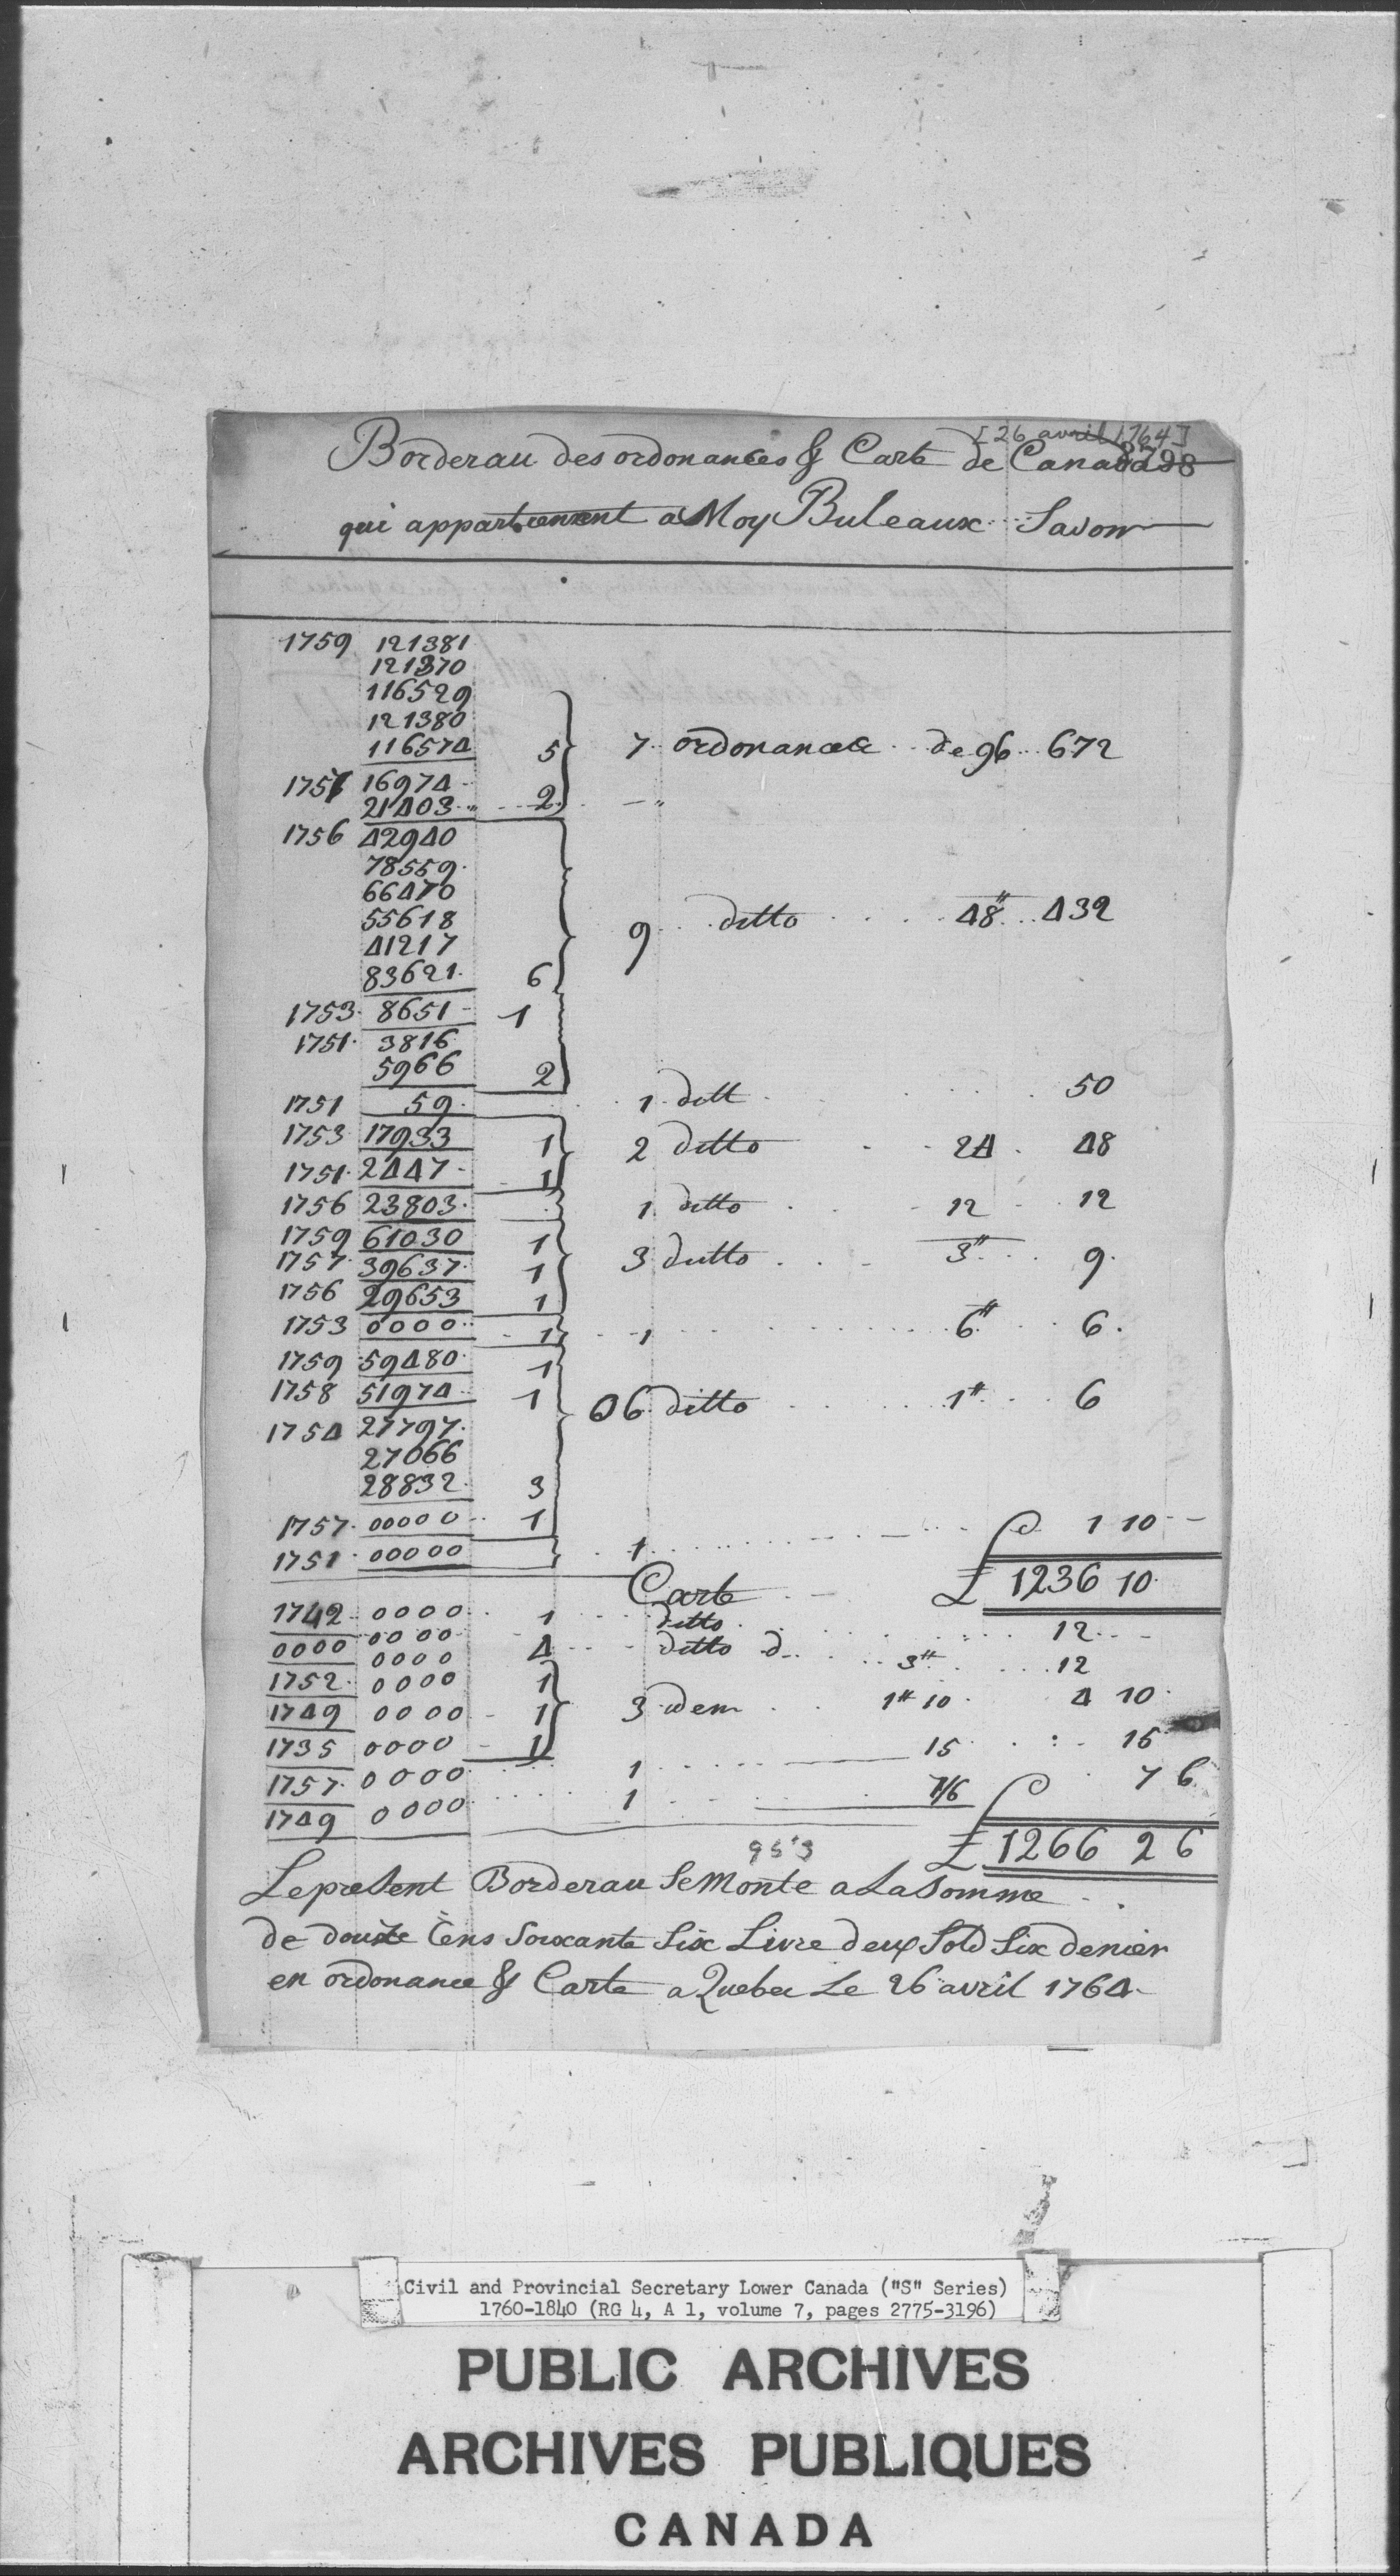 [26 avril 1764]
Borderau des ordonances & Carte de Canadas
qui appartienent a Moy Buleaux Savoir
1759 121381
121370
116529
121380
116574 5 7 ordonances de 96 672
1757 16974
21403 2
1756 42940
78559
66470
55618 9 ditto 48# 432
41217
83621 6
1753 8651 1
1751 3816
5966 2
1751 59 1 ditt 50
1753 17933 1 2 ditto 24 48
1751 2447 1
1756 23803 1 ditto 12 12
1759 61030 1 3 ditto 3# 9
1757 39637 1
1756 29653 1
1753 0000 1 1 6# 6
1759 59480 1
1758 51974 1 06 ditto 1# 6
1754 27797
27066
28832 3
1757 00000 1 1 10
1751 00000 1
Carte £ 1236 10
1742 0000 1 ditto 12
0000 0000 4 ditto d 3# 12
0000
1752 0000 1
1749 0000 1 3 idem 1# 10 4 10
1735 0000 1 15 15
1757 0000 1 7/6 7 6
1749 0000 1
95'3 £ 1266 2 6
Le present Borderau Se Monte a La Somme
de douze Cens Soixante Six Livre deux Sold Six denier
en ordonance & Carte a Quebec Le 26 avril 1764
Civil and Provincial Secretary Lower Canada ("S" Series)
1760-1840 (RG 4, A 1, volume 7, pages 2775-3196)
PUBLIC ARCHIVES
ARCHIVES PUBLIQUES
CANADA